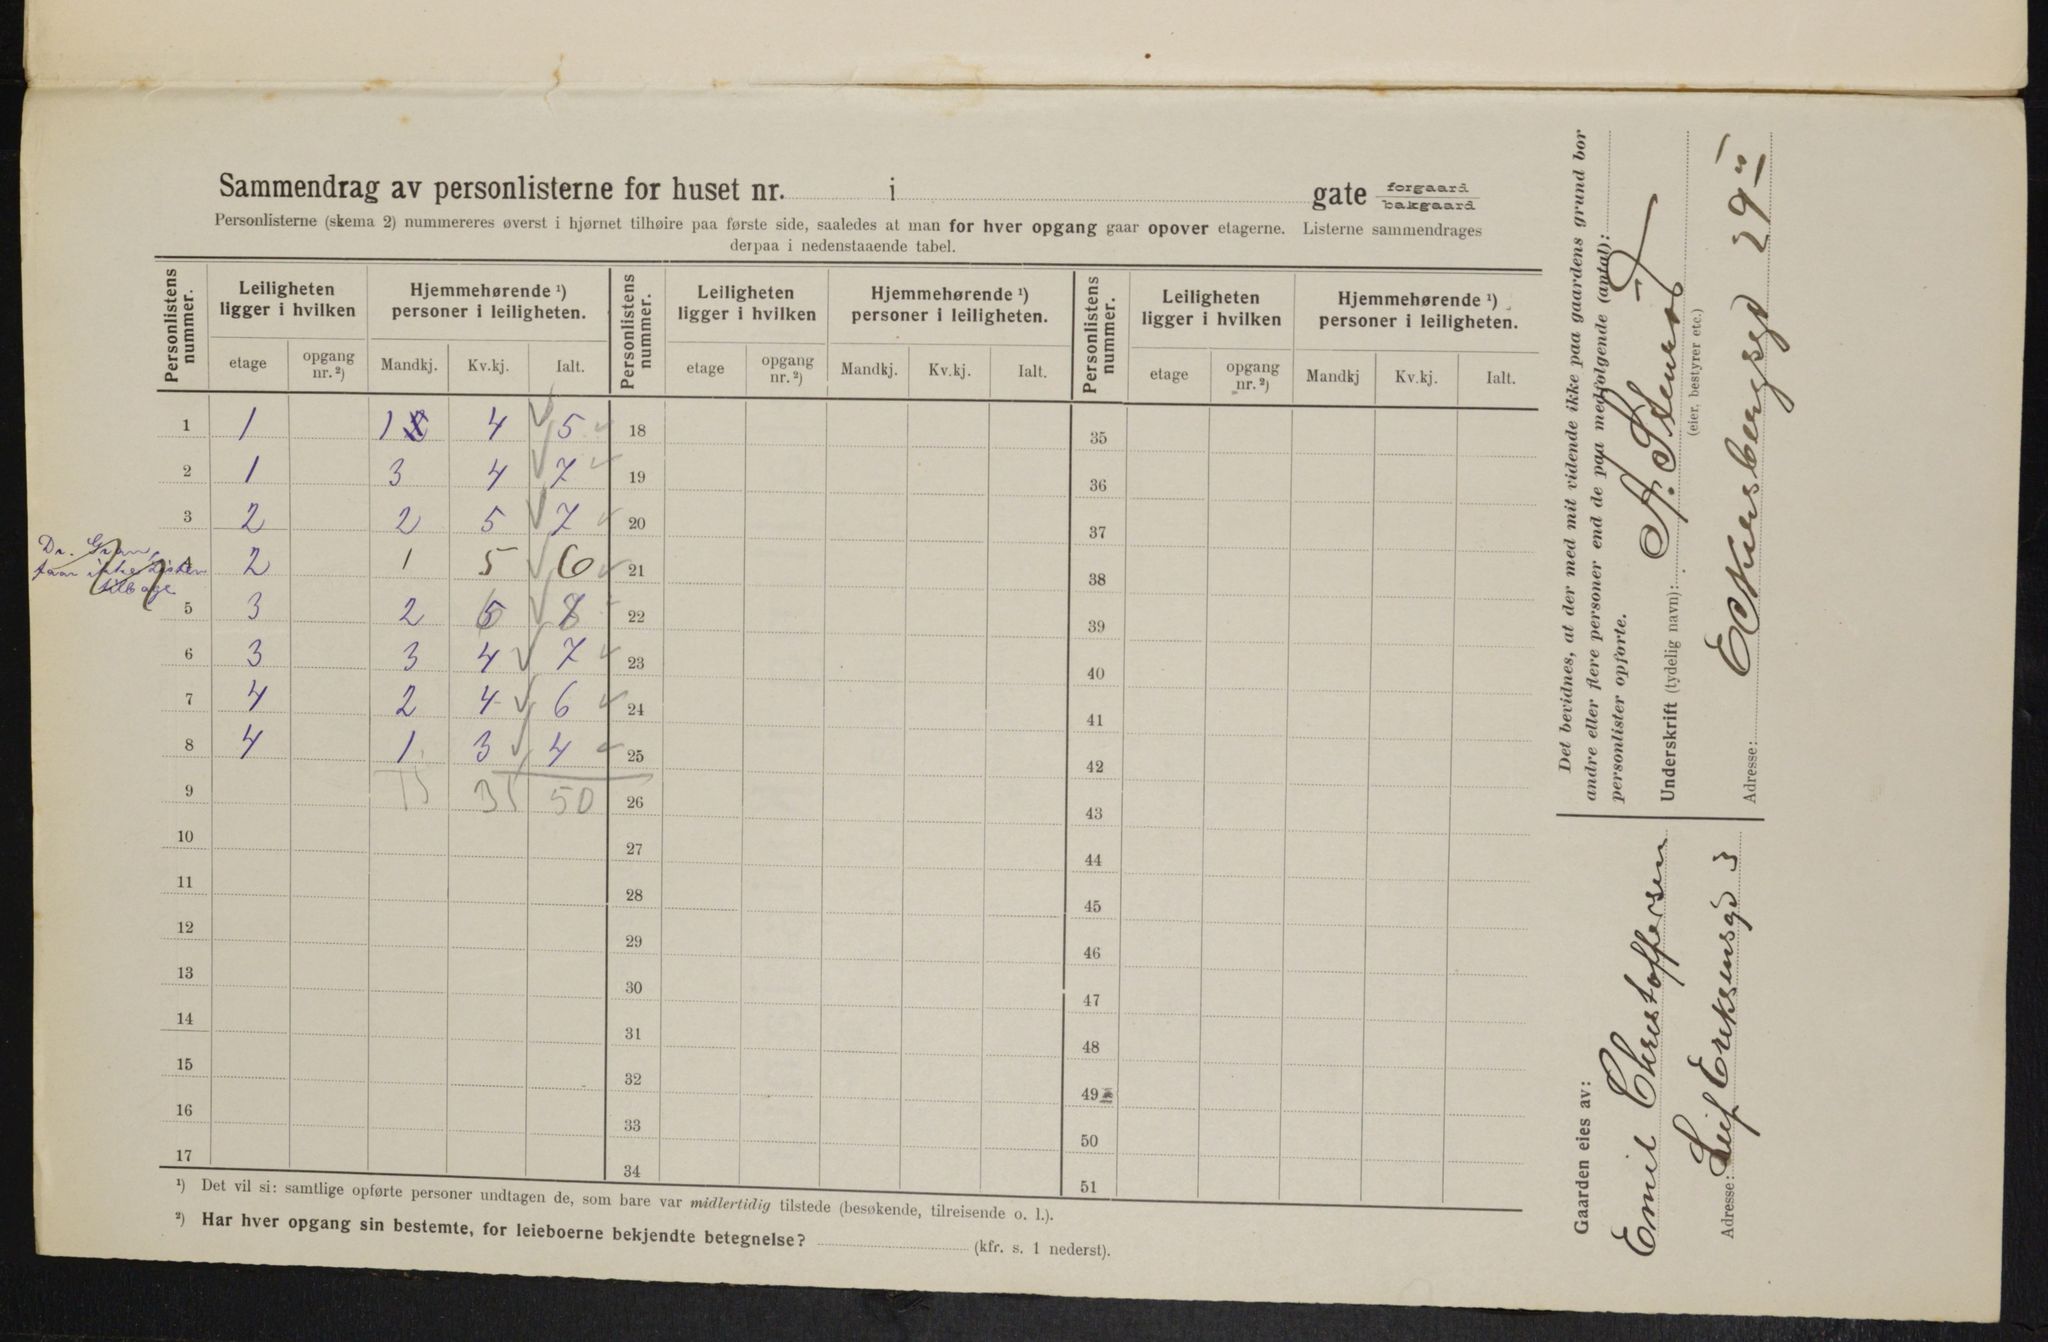 Sammendrag av personlisterne for huset nr. i gate forgaard bakgaard
Personlisterne (skema 2) nummereres øverst i hjørnet tilhøire paa første side, saaledes at man for hver opgang gaar opover etagerne. Listerne sammendrages
derpaa i nedenstaaende tabel.
Personlistens nummer. Leiligheten ligger i hvilken Hjemmehørende ¹) personer i leiligheten. Personlistens nummer. Leiligheten ligger i hvilken Hjemmehørende ¹) personer i leiligheten. Personlistens nummer. Leiligheten ligger i hvilken Hjemmehørende ¹) personer i leiligheten.
etage opgang nr. ²) Mandkj. Kv.kj. Ialt. etage opgang nr. ²) Mandkj. Kv.kj. Ialt. etage opgang nr. ²) Mandkj Kv.kj. Ialt.
1 1 1 4 5 18 35
2 1 3 4 7 19 36
3 2 2 5 7 20 37
Dr. Gran
faar ikke Listen
tilbage
4 2 1 5 6 21 38
5 3 2 6 8 22 39
6 3 3 4 7 23 40
7 4 2 4 6 24 41
8 4 1 3 4 25 42
9 15 35 50 26 43
10 27 44
11 28 45
12 29 46
13 30 47
14 31 48
15 32 49
16 33 50
17 34 51
¹) Det vil si: samtlige opførte personer undtagen de, som bare var midlertidig tilstede (besøkende, tilreisende o. l.).
²) Har hver opgang sin bestemte, for leieboerne bekjendte betegnelse? (kfr. s. 1 nederst).
Det bevidnes, at der med mit vidende ikke paa gaardens grund bor
andre eller flere personer end de paa medfølgende (antal):
personlister opførte.
Underskrift (tydelig navn):
(eier, bestyrer etc.)
Adresse: Eckersbergsgd 29 II
Gaarden eies av:
Emil Christoffersen
Adresse: Leif Eriksensgd 3